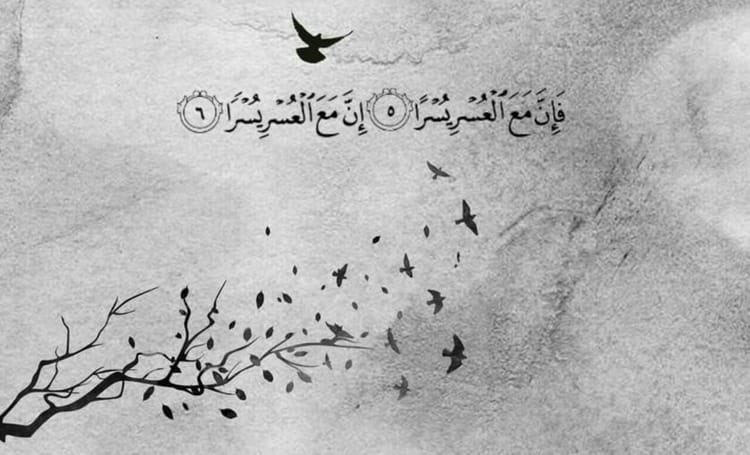 فَإِنَّ مَعَ ٱلۡعُسۡرِ يُسۡرًا ٥ إِنَّ مَعَ ٱلۡعُسۡرِ يُسۡرًا ٦